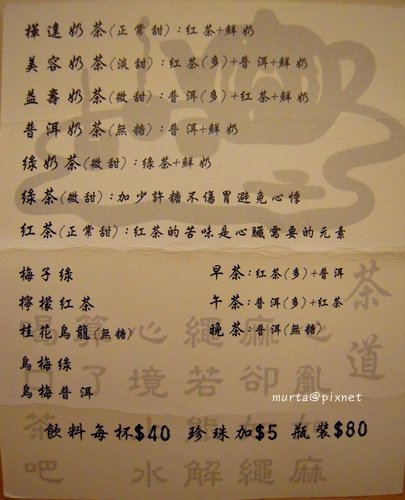 樺達奶茶(正常甜):紅茶+鮮奶
美容奶茶(淡甜):紅茶(多)+普洱+鮮奶
益壽奶茶(微甜):普洱(多)+紅茶+鮮奶
普洱奶茶(無糖):普洱+鮮奶
綠奶茶(微甜):綠茶+鮮奶
綠茶(微甜):加少許糖不傷胃避免心悸
紅茶(正常甜):紅茶的苦味是心臟需要的元素
梅子綠
檸檬紅茶
桂花烏龍(無糖)
烏梅綠
烏梅普洱
早茶:紅茶(多)+普洱
午茶:普洱(多)+紅茶
晚茶:普洱(無糖)
茶道
心亂
麻卻
繩若
心境
水解繩麻
茶吧
murta@pixnet
飲料每杯$40 珍珠加$5 瓶裝$80